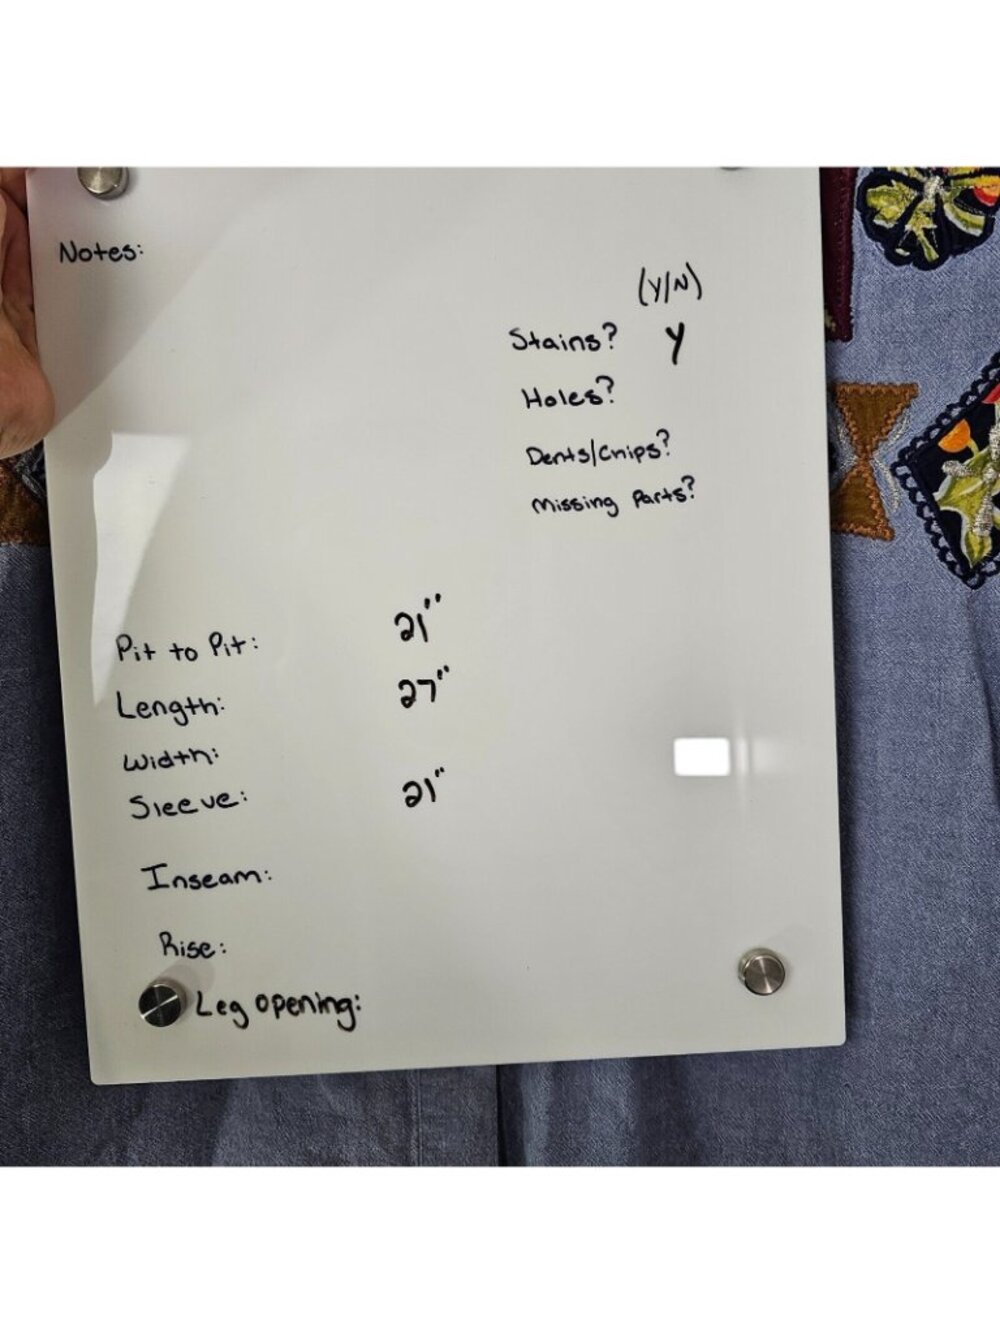 Notes:
(Y/N)
Stains? Y
Holes?
Dents/Chips?
Missing Parts?
Pit to Pit: 21"
Length: 27"
Width:
Sleeve: 21"
Inseam:
Rise:
Leg opening: